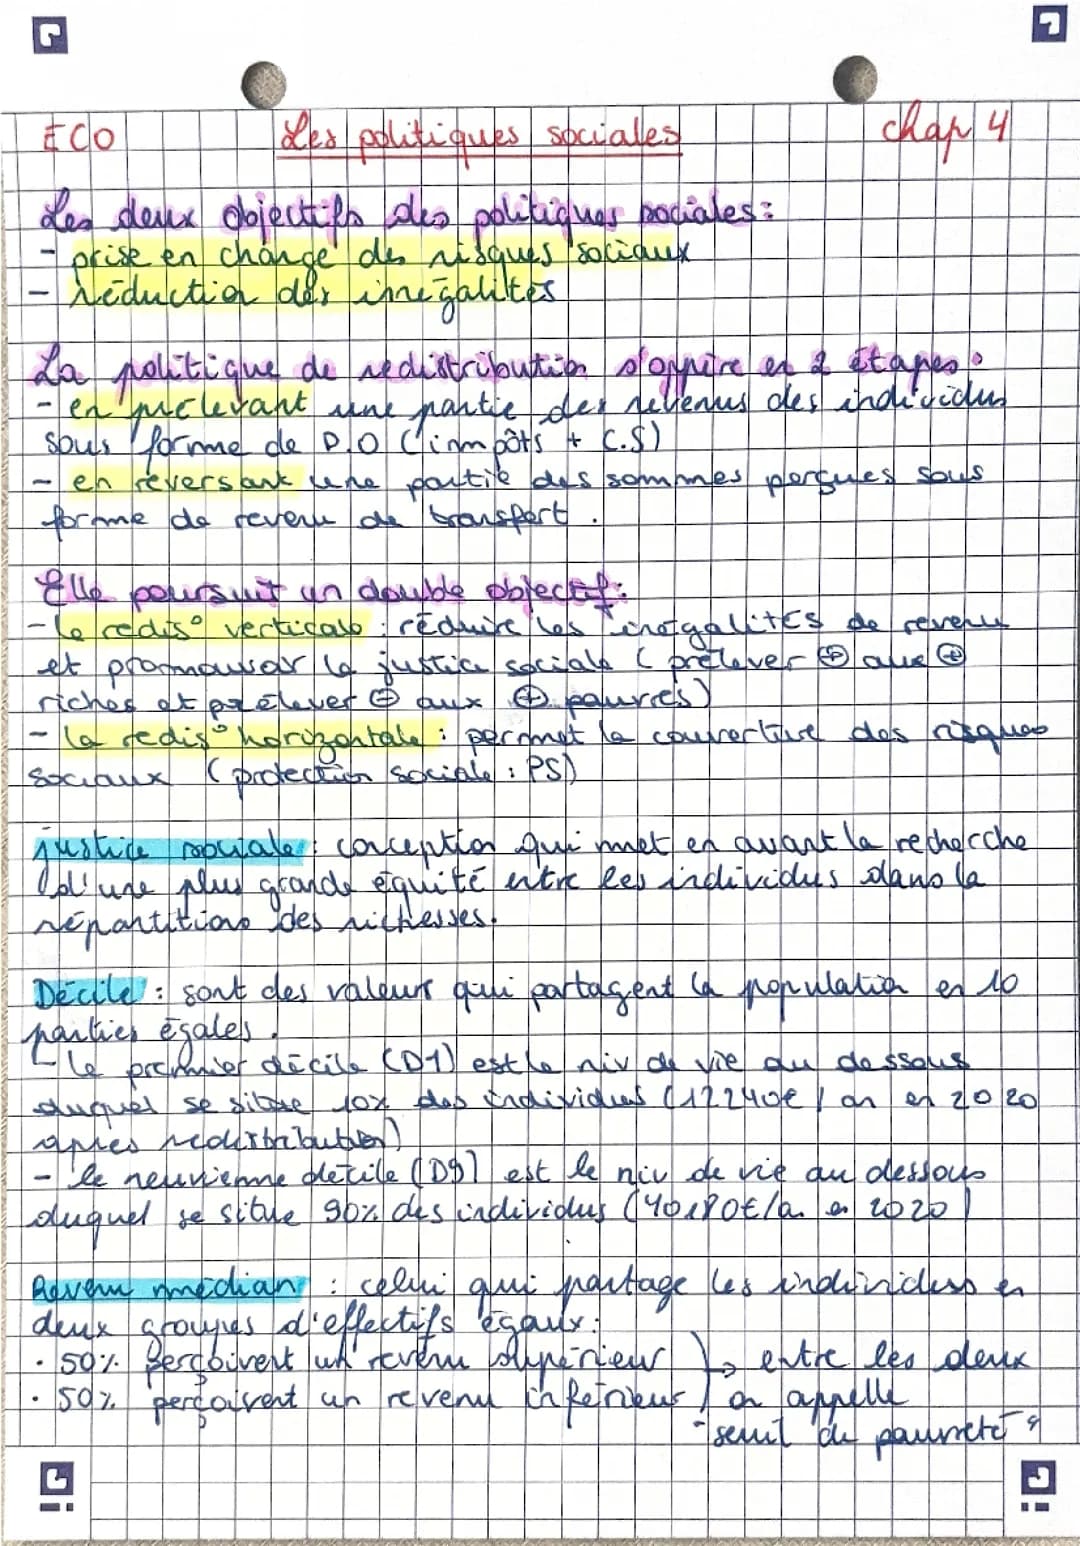 ECO Les politiques sociales chap 4
Les deux objectifs des politiques sociales :
- prise en charge des risques sociaux
- Réduction des inégalités
La politique de redistribution s'opère en 2 étapes :
- en prélevant une partie des revenus des individus
sous forme de P.O (impôts + C.S)
- en reversant une partie des sommes perçues sous
forme de revenu de transfert.
Elle poursuit un double objectif :
- la redis° verticale : réduire les inégalités de revenu
et promouvoir la justice sociale ( prélever ⊕ aux ⊕
riches et prélever ⊖ aux ⊕ pauvres)
- la redis° horizontale : permet la couverture des risques
sociaux (protection sociale : PS)
justice sociale : conception qui met en avant la recherche
d'une plus grande équité entre les individus dans la
répartitions des richesses.
Décile : sont des valeurs qui partagent la population en 10
parties égales.
- le premier décile (D1) est le niv de vie au dessous
duquel se situe 10% des individus (12240€ / an en 2020
après redistribution)
- le neuvienne décile (D9) est le niv de vie au dessous
duquel se situe 90% des individus (40180€/a. en 2020)
Revenu médian : celui qui partage les individus en
deux groupes d'effectifs égaux :
• 50% perçoivent un revenu supérieur } → entre les deux
• 50% perçoivent un revenu inférieur } on appelle
"seuil de pauvreté"